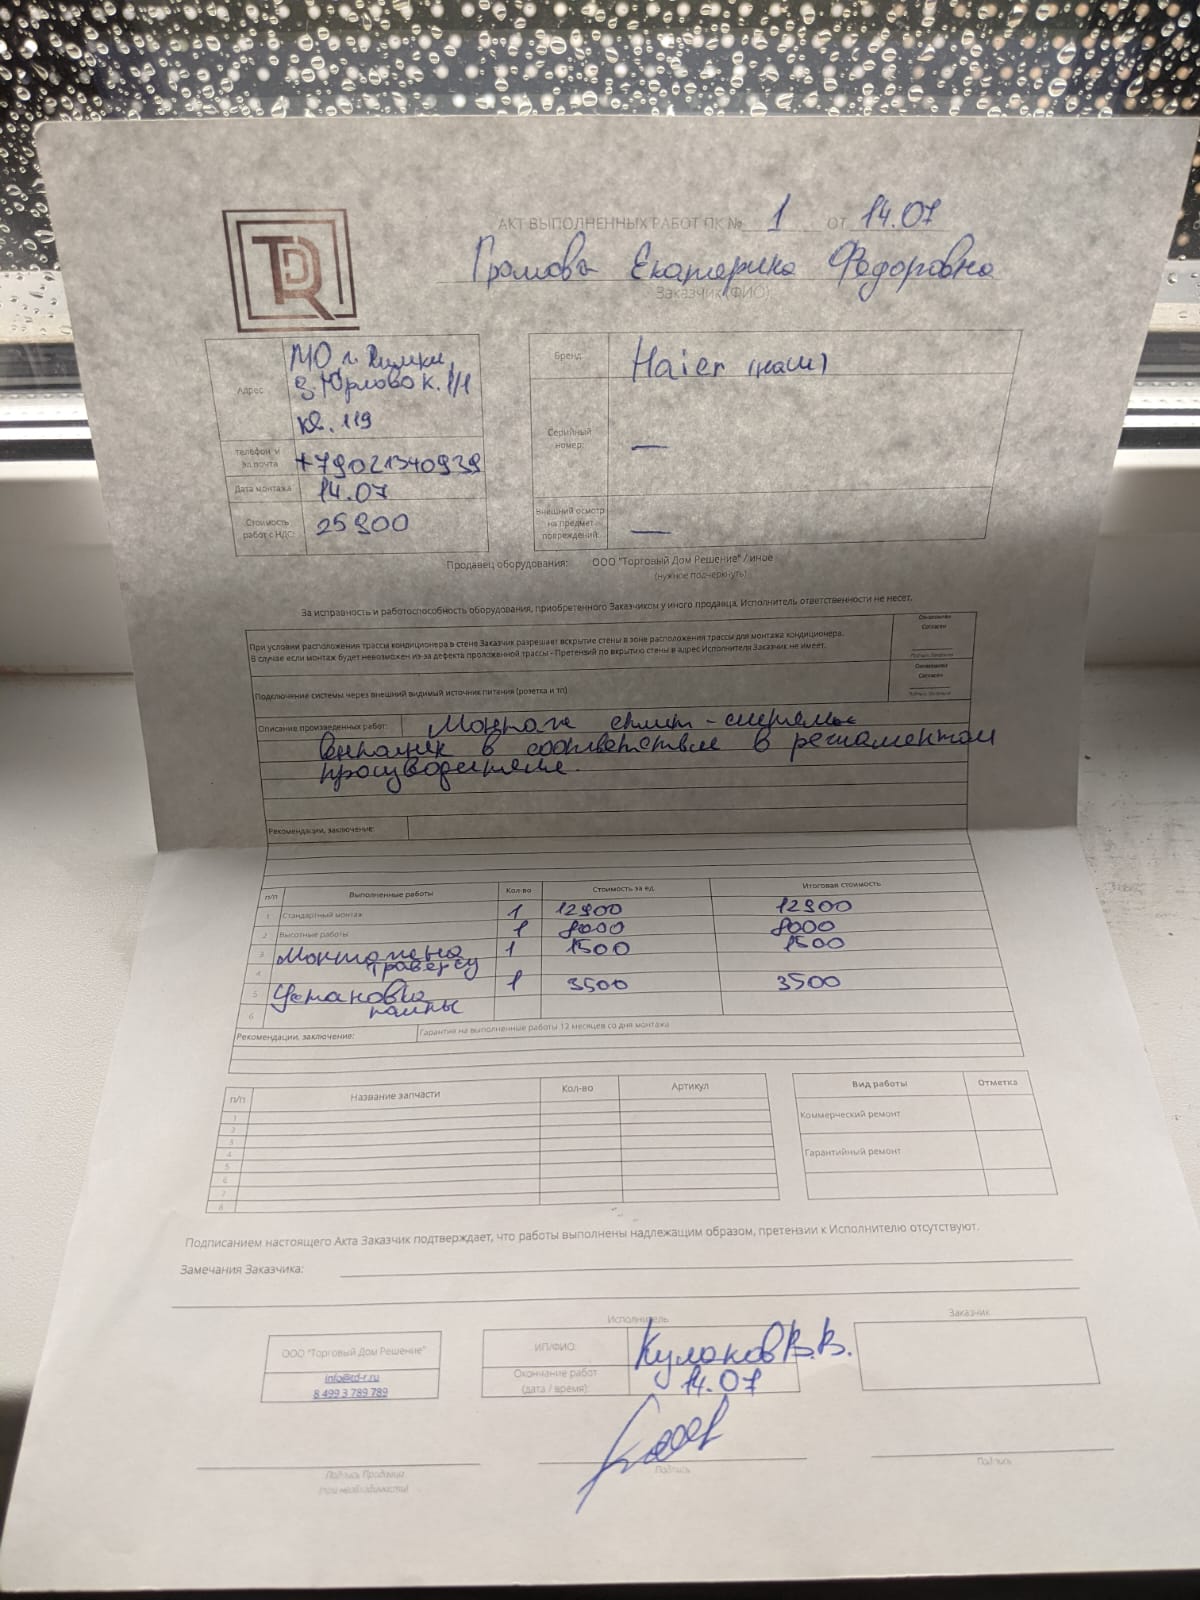 TDR
АКТ ВЫПОЛНЕННЫХ РАБОТ ПК № 1 ОТ 14.07
Громова Екатерина Федоровна
Заказчик (ФИО)
Адрес
МО г. Химки,
Юрлово к. 1/1
кв. 119
телефон и эл.почта +79021340939
Дата монтажа 14.07
Стоимость работ с НДС: 25900
Бренд Haier (наш)
Серийный номер: —
Внешний осмотр на предмет повреждений: —
Продавец оборудования: ООО "Торговый Дом Решение" / иное
(нужное подчеркнуть)
За исправность и работоспособность оборудования, приобретенного Заказчиком у иного продавца, Исполнитель ответственности не несет.
При условии расположения трассы кондиционера в стене Заказчик разрешает вскрытие стены в зоне расположения трассы для монтажа кондиционера.
В случае если монтаж будет невозможен из-за дефекта проложенной трассы - Претензий по вкрытию стены в адрес Исполнителя Заказчик не имеет.
Ознакомлен
Согласен
Подпись Заказчика
Подключение системы через внешний видимый источник питания (розетка и тп)
Ознакомлен
Согласен
Подпись Заказчика
Описание произведенных работ: Монтаж сплит-системы
выполнен в соответствие в регламентом
производителя.
Рекомендации, заключение:
п/п Выполненные работы Кол-во Стоимость за ед. Итоговая стоимость
1 Стандартный монтаж 1 12900 12900
2 Высотные работы 1 8000 8000
3 Монтаж на 1 1500 1500
4 траверсу
5 Установка 1 3500 3500
6 помпы
Рекомендации, заключение: Гарантия на выполненные работы 12 месяцев со дня монтажа
п/п Название запчасти Кол-во Артикул
1
2
3
4
5
6
7
8
Вид работы Отметка
Коммерческий ремонт
Гарантийный ремонт
Подписанием настоящего Акта Заказчик подтверждает, что работы выполнены надлежащим образом, претензии к Исполнителю отсутствуют.
Замечания Заказчика:
Исполнитель
Заказчик
ООО "Торговый Дом Решение"
info@td-r.ru
8 499 3 789 789
ИП/ФИО: Кулаков В.В.
Окончание работ (дата / время): 14.07
Подпись Продавца
(при необходимости)
Подпись
Подпись